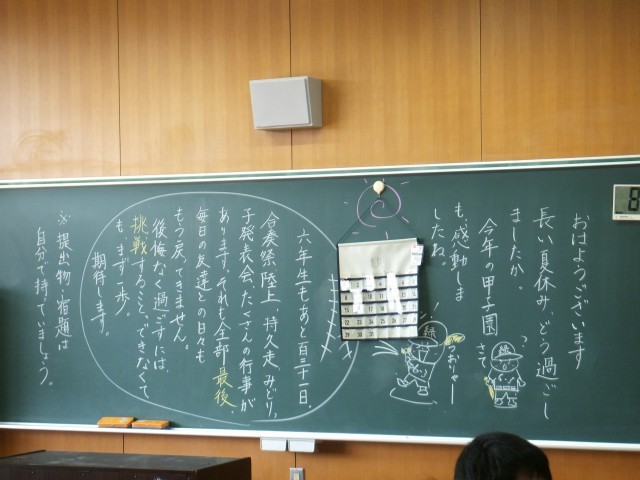 おはようございます
長い夏休み、どう過ごし
ましたか。
今年の甲子園
も、感動しま
したね。
さて
つおりゃー
緑
六年生もあと百三十一日。
合奏祭、陸上、持久走、みどり
子発表会、たくさんの行事が
あります。それも全部最後
毎日の友達との日々も
もう戻ってきません。
後悔なく過ごすには、
挑戦すること、できなくて
も、まず一歩。
期待します。
※提出物・宿題は
自分で持っていましょう。
8